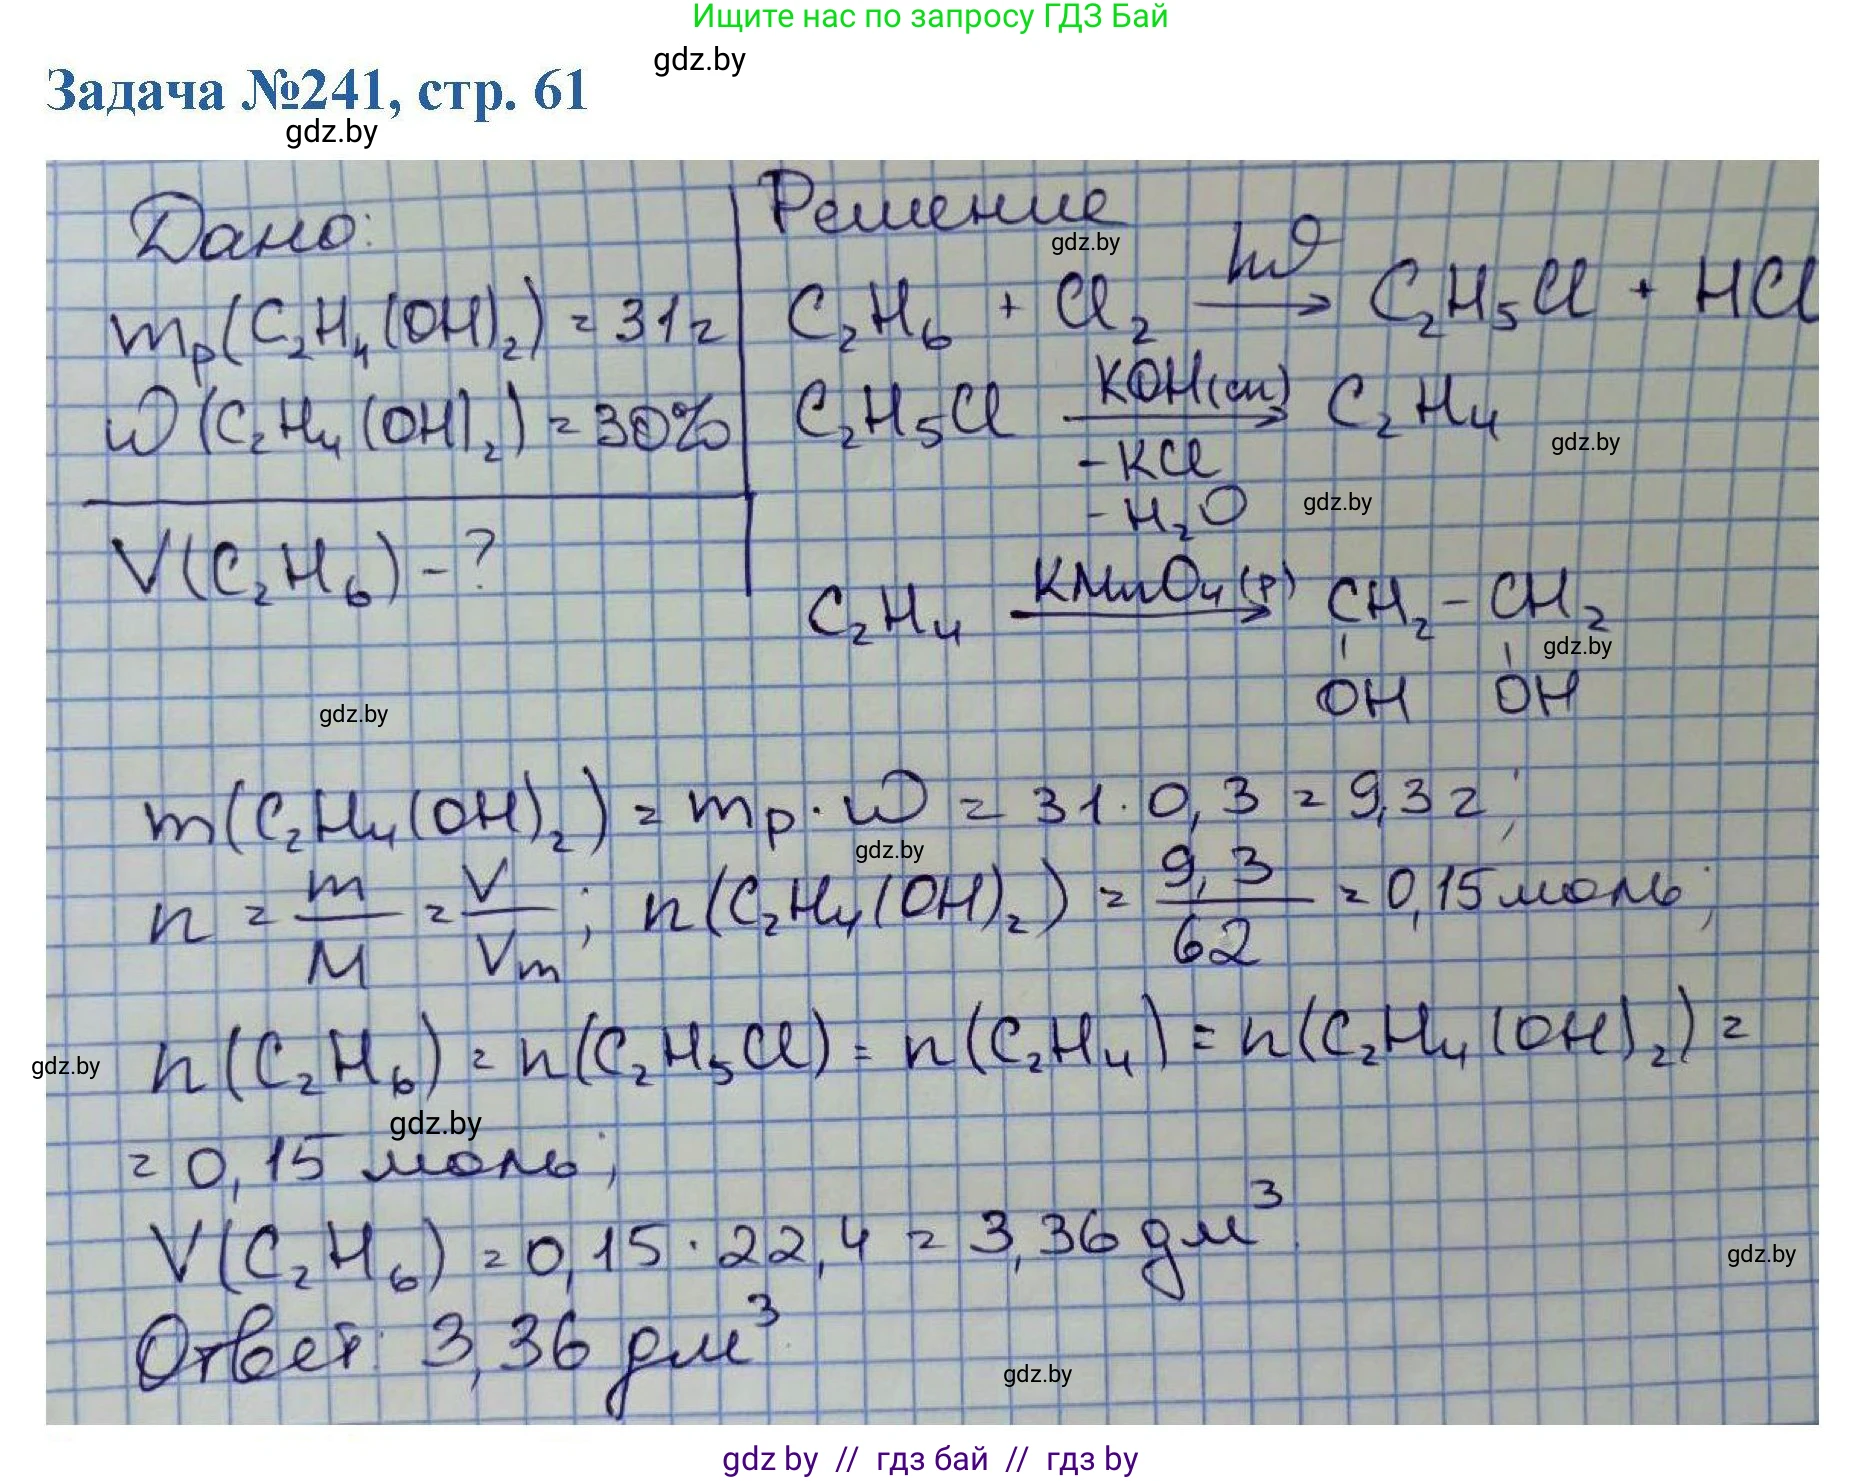 Ищите нас по запросу ГДЗ Бай
gdz.by
Задача №241, стр. 61
gdz.by
Дано:
mр(C₂H₄(OH)₂) = 31г
ω(C₂H₄(OH)₂) = 30%
V(C₂H₆) - ?
Решение
gdz.by
C₂H₆ + Cl₂ →(hϑ) C₂H₅Cl + HCl
C₂H₅Cl →(KOH(сп)) C₂H₄
gdz.by
-KCl
-H₂O
gdz.by
C₂H₄ →(KMnO₄(р)) CH₂ - CH₂
gdz.by
OH OH
gdz.by
m(C₂H₄(OH)₂) = mр · ω = 31 · 0,3 = 9,3г;
gdz.by
n = m/M = V/Vm; n(C₂H₄(OH)₂) = 9,3/62 = 0,15 моль;
n(C₂H₆) = n(C₂H₅Cl) = n(C₂H₄) = n(C₂H₄(OH)₂) =
gdz.by
gdz.by
= 0,15 моль;
V(C₂H₆) = 0,15 · 22,4 = 3,36 дм³.
gdz.by
Ответ: 3,36 дм³.
gdz.by
gdz by // гдз бай // гдз by